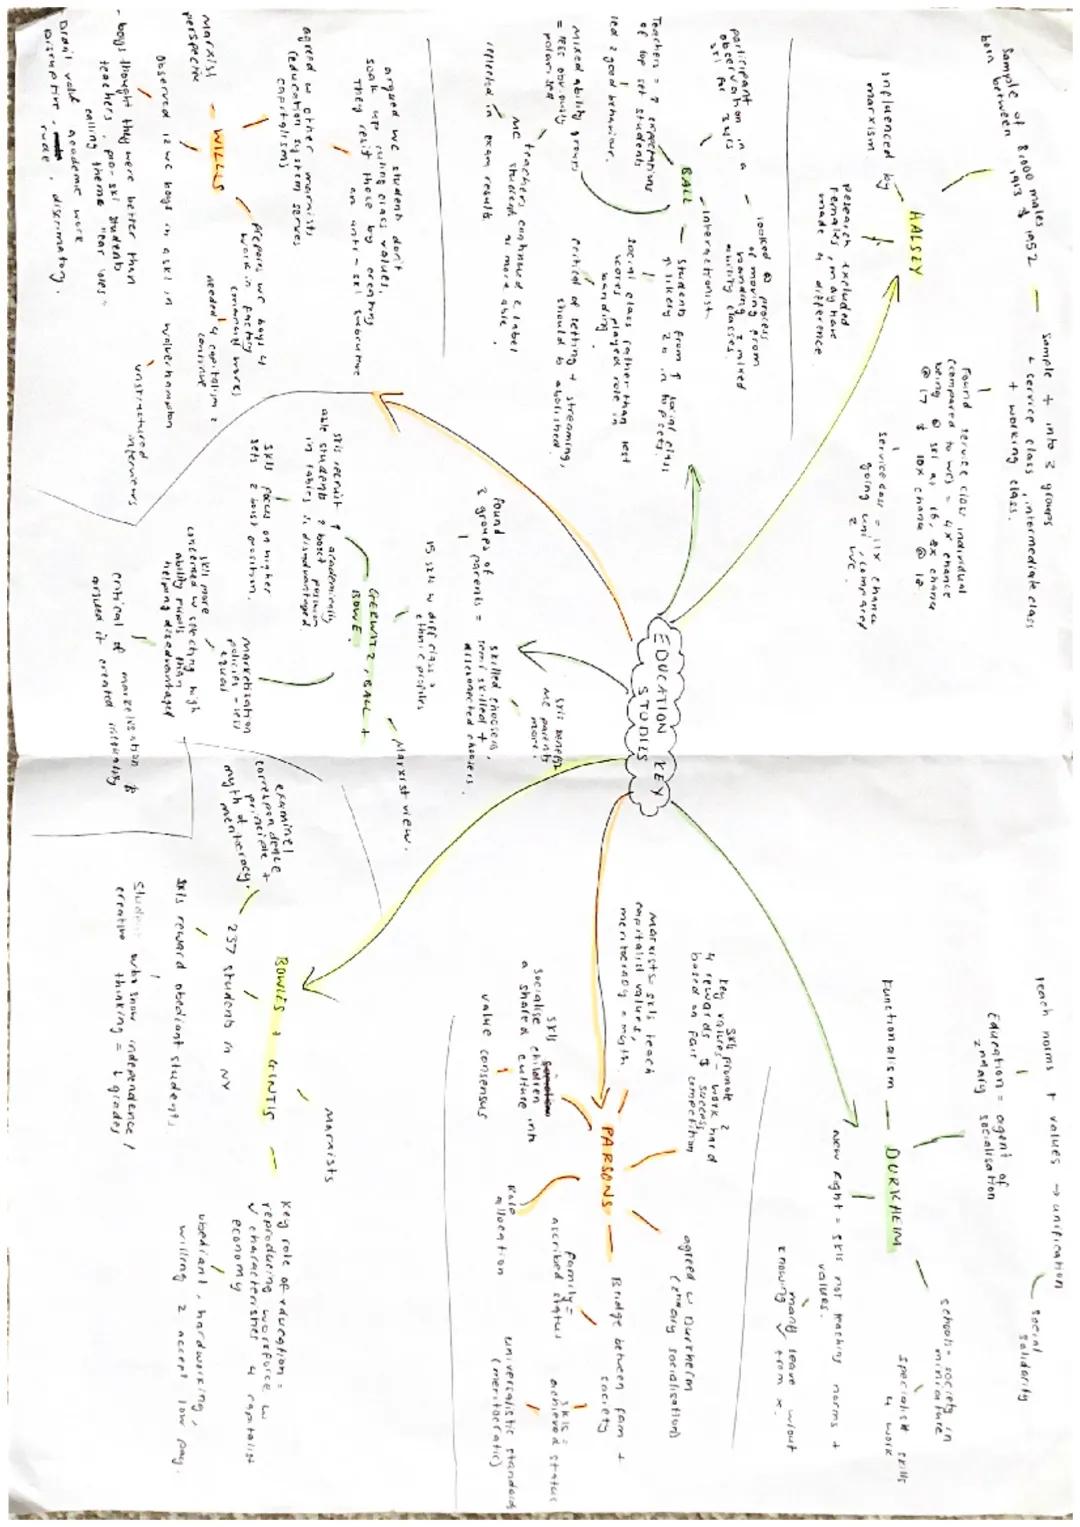 EDUCATION KEY
STUDIES
HALSEY
Sample of 81000 males
born between 1913 & 1952
Sample + into 3 groups
+ service class, intermediate class
+ working class.
influenced by
marxism
research excluded
females, may have
made a difference
found service class individual
(compared to wcs) = 4x chance
being @ skl at 16, 8x chance
@ 17 & 10x chance @ 18
service class = 11x chance
going uni, compared
2 wc.
BALL
Interactionist
participant in a
observation
skl for 3yrs
looked @ process
of moving from
banding 2 mixed
ability classes.
Teachers = ↑ expectations
of top set students
led 2 good behaviour.
Students from ↑ social class
↑ likely 2 b in top sets.
Mixed ability groups
= less obviously
polarised
social class rather than test
scores played role in
banding
teachers continued 2 label
mc student as more able.
reflected in exam results
critical of setting + streaming,
should b abolished.
WILLIS
Marxist
perspective
argued wc student don't
soak up ruling class values.
They resist these by creating
an anti-skl subculture
agreed w other marxists
(education system serves
capitalism)
prepares wc boys 4
work in factory
(manual work)
needed 4 capitalism 2
continue
Observed 12 wc boys in a skl in wolverhampton
unstructured
interviews
- boys thought they were better than
teachers, pro-skl students
calling them "ear'oles"
- Didn't value academic work
- Disruptive, rude, discrimatory.
GERWITZ, BALL +
BOWE
Marxist view.
found
3 groups of
parents =
skilled choosers,
semi skilled +
disconnected choosers.
skls benefit
mc parents
more.
15 skls w diff class &
ethnic profiles
skls recruit ↑ academically
able students 2 boost position
in tables
disadvantaged
skls focus on higher
sets 2 boost position.
Marketization
policies - less
equal
skls more
concerned w selecting high
ability pupils than
helping disadvantaged
critical of marketisation &
argued it created inequality
BOWLES + GINTIS
Marxists
examined
correspondence
principle +
myth of
meritocracy.
237 students in NY
skls reward obediant students.
Student who show independence /
creative thinking = ↓ grades
Key role of education =
reproducing workforce w
✓ characteristics 4 capitalist
economy
obediant, hardworking,
willing 2 accept low pay.
PARSONS
skls promote 2
key values - work hard
4 rewards & success
based on fair competition
Marxists = skls teach
capitalist values,
meritocracy = myth.
skls
socialise children into
a shared culture
value consensus
Role
allocation
agreed w Durkheim
(2ndary socialisation)
Bridge between fam +
society
family =
ascribed status
skls =
achieved status
universalistic standards
(meritocratic)
DURKHEIM
Functionalism
teach norms + values → unification
social
solidarity
Education = agent of
2ndary socialisation
schools = society in
miniature
specialist skills
4 work
New Right = skls not teaching norms +
values.
many leave w/out
knowing ✓ from x.